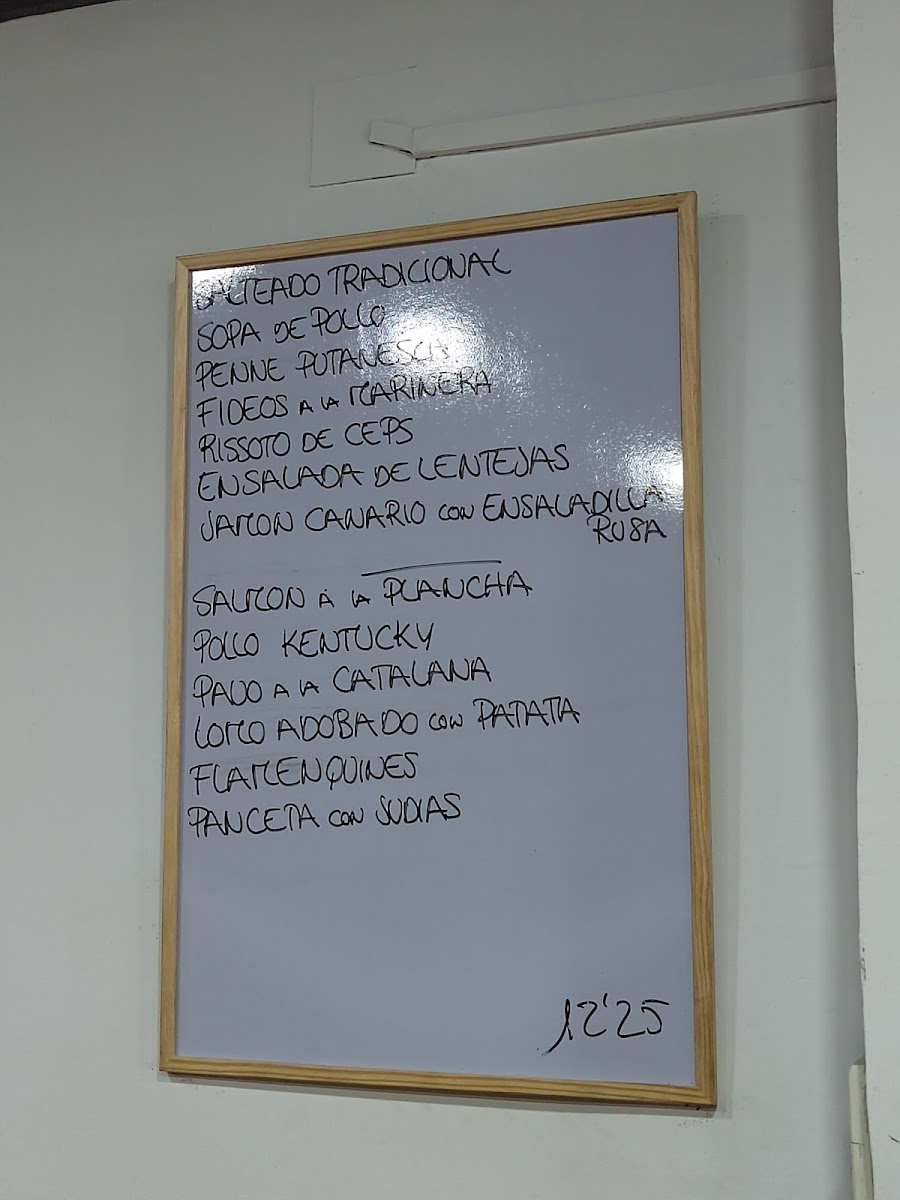 SALTEADO TRADICIONAL
SOPA DE POLLO
PENNE PUTANESCA
FIDEOS A LA MARINERA
RISSOTO DE CEPS
ENSALADA DE LENTEJAS
JAMON CANARIO con ENSALADILLA
RUSA
SALMON A LA PLANCHA
POLLO KENTUCKY
PAVO A LA CATALANA
LOMO ADOBADO con PATATA
FLAMENQUINES
PANCETA con JUDIAS
12'25